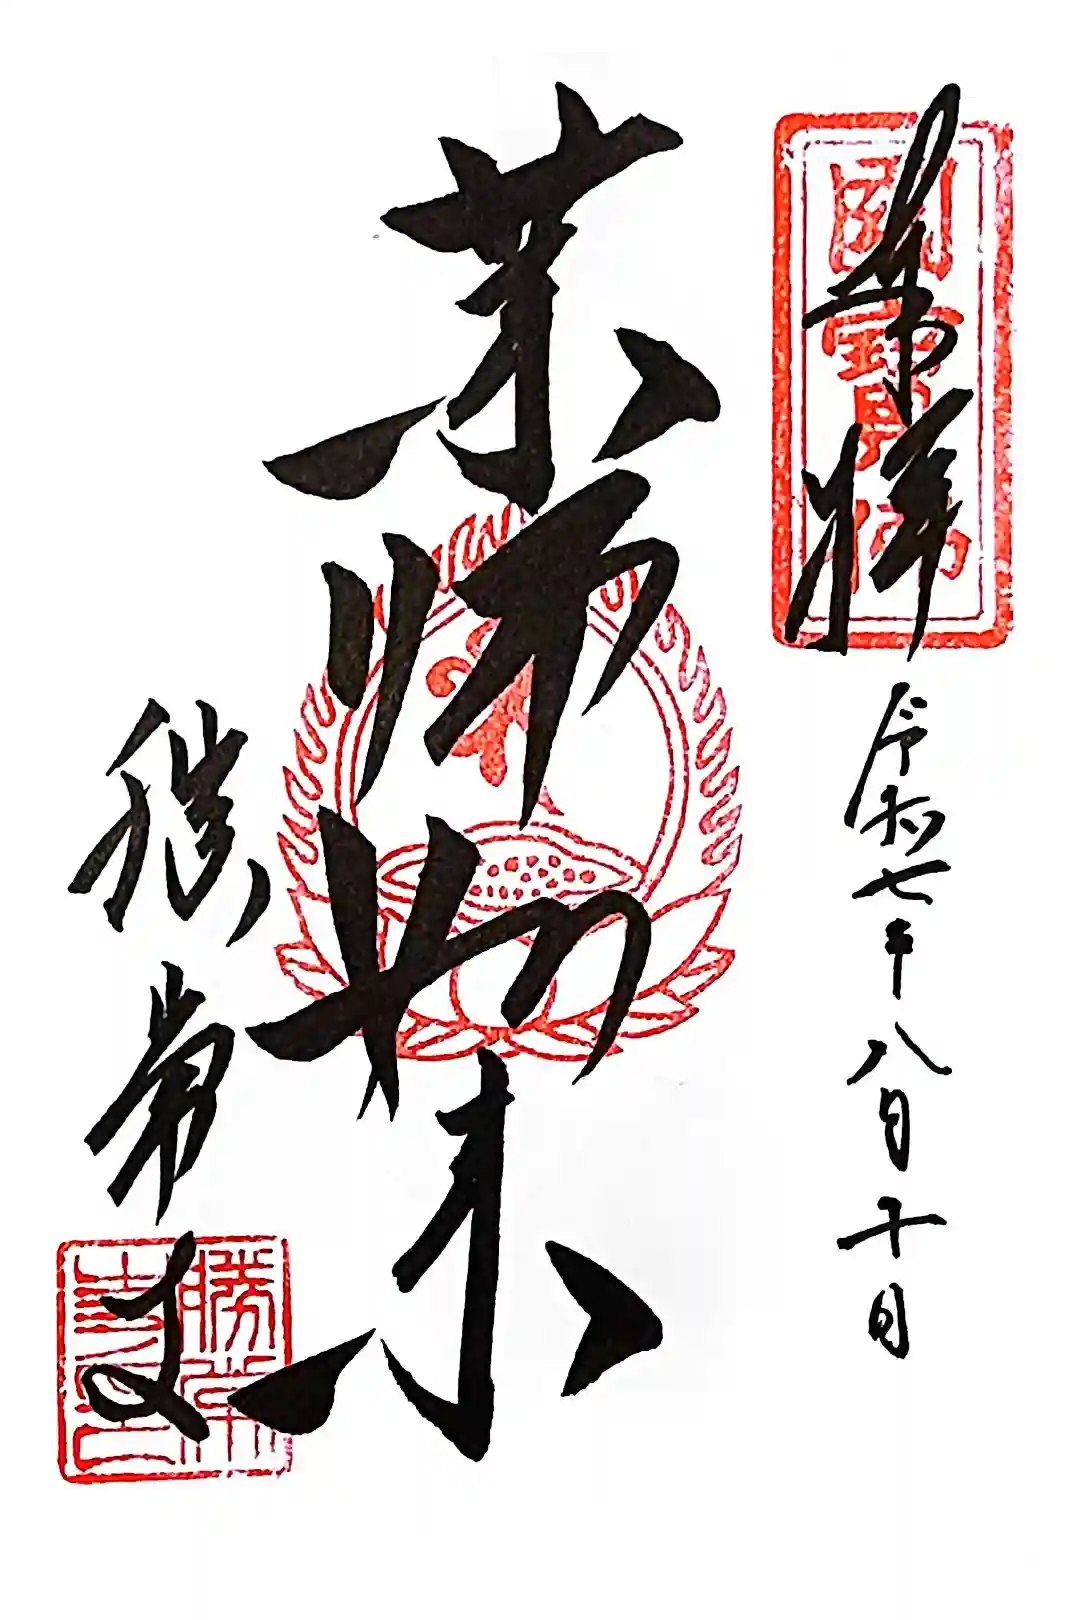 奉拝
令和七年八月十日
薬師如来
勝常寺
國寶薬師
勝常寺印